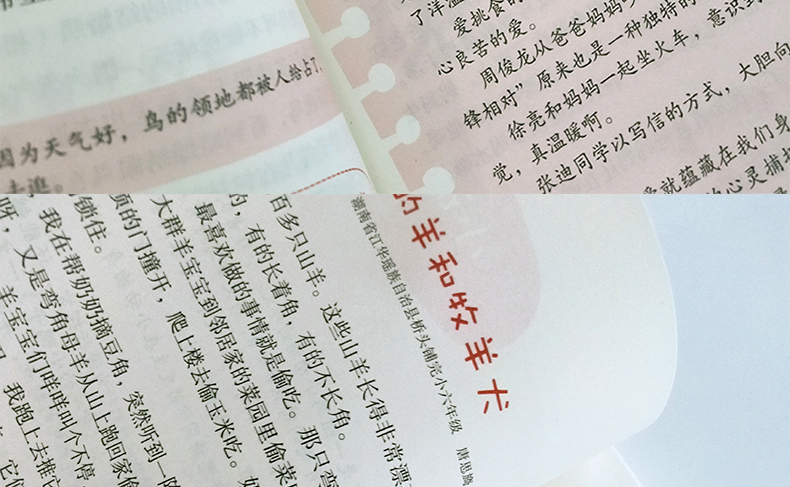 因为天气好，鸟的领地都被人给占了，
了洋溢
爱挑食的
心良苦的爱。
周俊龙从爸爸妈妈
锋相对”原来也是一种独特的
徐亮和妈妈一起坐火车，意识到
觉，真温暖啊。
张迪同学以写信的方式，大胆向
爱就蕴藏在我们身
的心灵捕捉
的羊和牧羊犬
湖南省江华瑶族自治县桥头铺完小六年级 唐思嵩
百多只山羊。这些山羊长得非常漂
的，有的长着角，有的不长角。那只弯
最喜欢做的事情就是偷吃。
大群羊宝宝到邻居家的菜园里偷菜
顶的门撞开，爬上楼去偷玉米吃。
锁住。
我在帮奶奶摘豆角，突然听到一阵
呀，又是弯角母羊从山上跑回家偷
羊宝宝们咩咩叫个不停
我跑上去推它